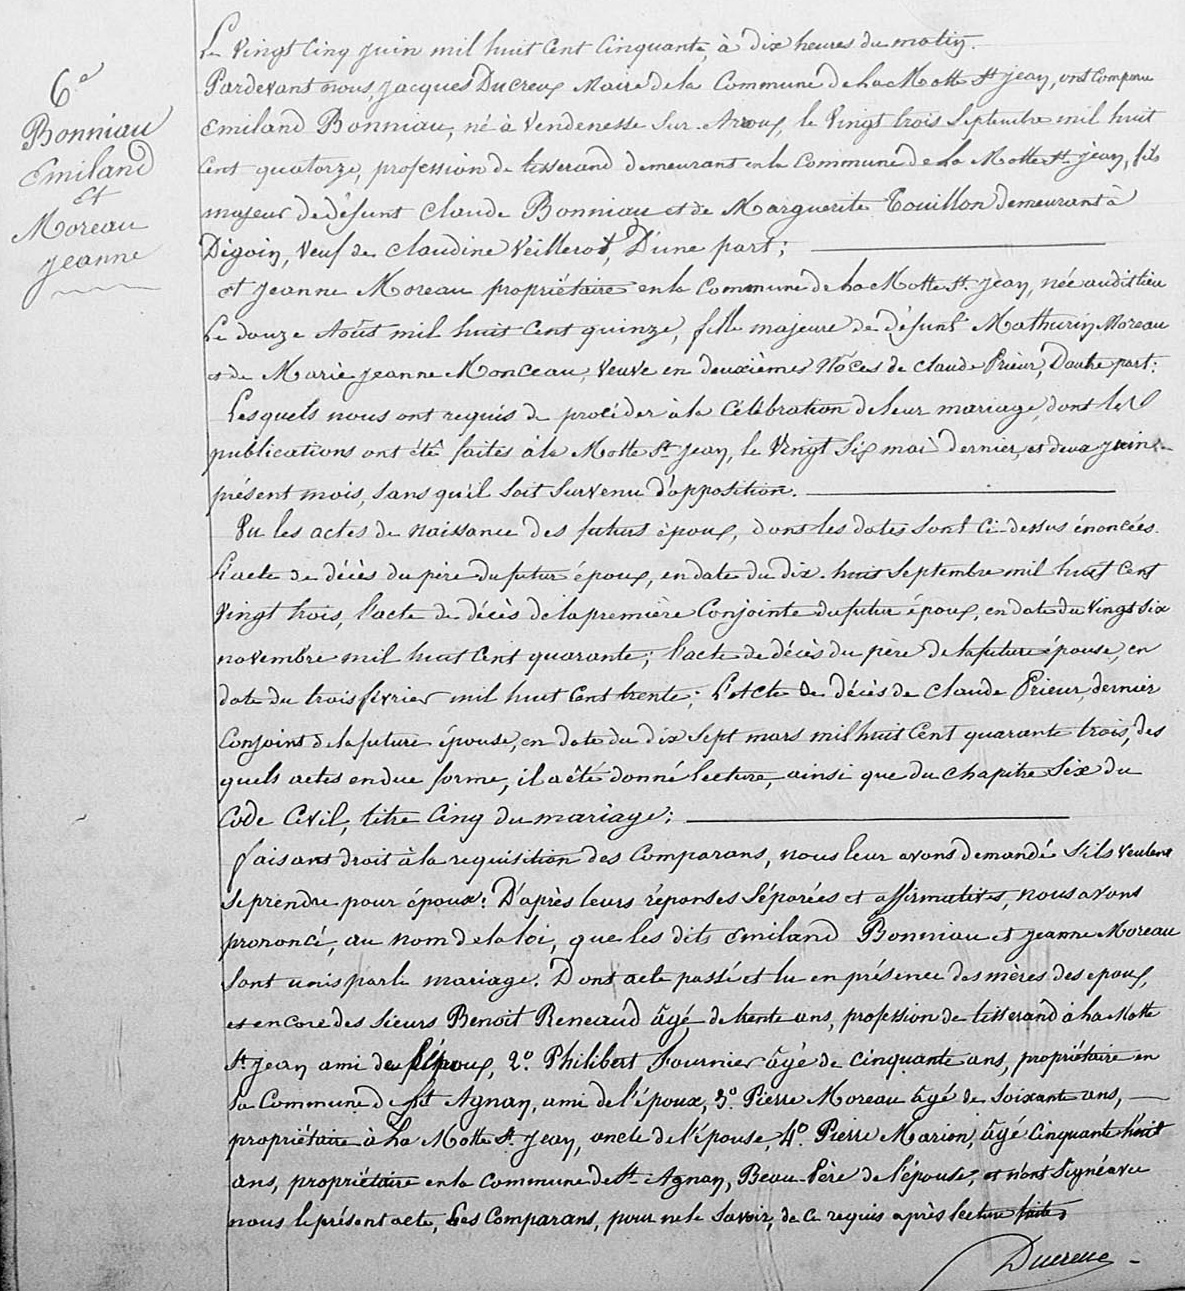 6e
Bonniau
Emiland
et
Moreau
Jeanne
Le Vingt Cinq Juin mil huit Cent Cinquante, à dix heures du matin.
Pardevant nous, Jacques Ducreux Maire de la Commune de La Motte St Jean, ont Comparu
Emiland Bonniau, né à Vendenesse Sur Aroux, le Vingt trois Septembre mil huit
Cent quatorze, profession de tisserand demeurant en la Commune de La Motte St Jean, fils
majeur de défunt Claude Bonniau et de Marguerite Touillon demeurant à
Digoin, Veuf de Claudine Veillerot, D'une part;
et Jeanne Moreau propriétaire en la Commune de La Motte St Jean, née audit lieu
Le douze Août mil huit Cent quinze, fille majeure de défunt Mathurin Moreau
et de Marie Jeanne Monceau, Veuve en deuxièmes Nôces de Claude Prieur, D'autre part;
Lesquels nous ont requis de procéder à la Célébration de leur mariage, dont les
publications ont été faites à la Motte St Jean, le Vingt Six mai dernier, et deux Juin
présent mois, Sans qu'il Soit Survenu d'opposition.
Vu les actes de Naissance des futurs époux, dont les dates Sont Ci-dessus énoncées.
L'acte de décès du père du futur époux, en date du dix-huit Septembre mil huit Cent
Vingt trois, l'acte de décès de la première Conjointe du futur époux, en date du Vingt Six
novembre mil huit Cent quarante; l'acte de décès du père de la future épouse, en
date du trois février mil huit Cent trente; L'acte de décès de Claude Prieur, dernier
Conjoint de la future épouse, en date du dix Sept mars mil huit Cent quarante trois, des
quels actes en due forme, il a été donné lecture, ainsi que du Chapitre Six du
Code Civil, titre Cinq du mariage;
faisant droit à la requisition des Comparans, nous leur avons demandé S'ils veulent
Se prendre pour époux: D'après leurs réponses Séparées et affirmatives, nous avons
prononcé, au nom de la loi, que les dits Emiland Bonniau et Jeanne Moreau
Sont unis par le mariage. Dont acte passé et lu en présence des mères des epoux,
et encore des Sieurs Benoit Reneaud âgé de trente ans, profession de tisserand à La Motte
St Jean ami de l'époux, 2º. Philibert Fournier âgé de Cinquante ans, propriétaire en
la Commune de St Agnan, ami de l'époux, 3º. Pierre Moreau âgé de Soixante ans,
propriétaire à La Motte St Jean, oncle de l'épouse, 4º. Pierre Marion, âgé Cinquante huit
ans, propriétaire en la Commune de St Agnan, Beau-Père de l'épouse; et n'ont Signé avec
nous le présent acte, Les Comparans, pour ne le Savoir, de ce requis après lecture faite.
Ducreux